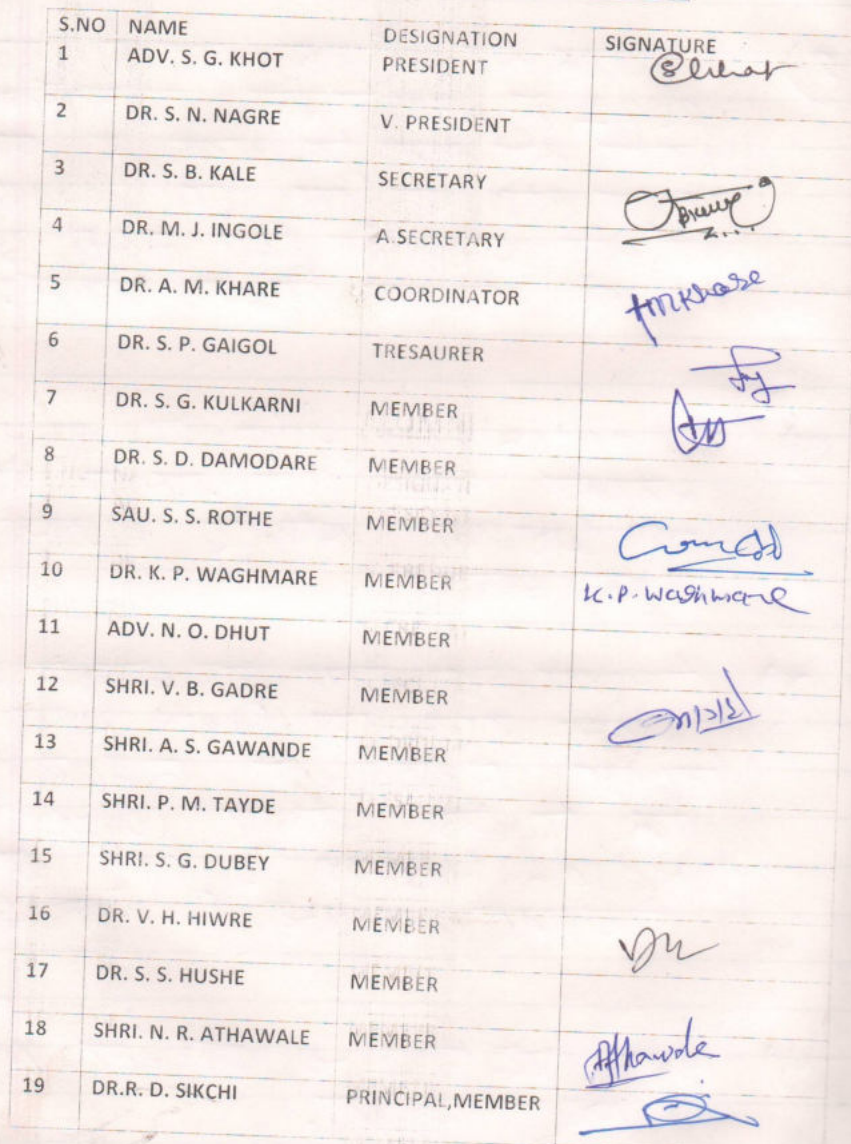 S.NO NAME DESIGNATION SIGNATURE
1 ADV. S. G. KHOT PRESIDENT
2 DR. S. N. NAGRE V. PRESIDENT
3 DR. S. B. KALE SECRETARY
4 DR. M. J. INGOLE A.SECRETARY
5 DR. A. M. KHARE COORDINATOR AMKhare
6 DR. S. P. GAIGOL TRESAURER
7 DR. S. G. KULKARNI MEMBER
8 DR. S. D. DAMODARE MEMBER
9 SAU. S. S. ROTHE MEMBER
10 DR. K. P. WAGHMARE MEMBER K.P. Waghmare
11 ADV. N. O. DHUT MEMBER
12 SHRI. V. B. GADRE MEMBER
13 SHRI. A. S. GAWANDE MEMBER
14 SHRI. P. M. TAYDE MEMBER
15 SHRI. S. G. DUBEY MEMBER
16 DR. V. H. HIWRE MEMBER
17 DR. S. S. HUSHE MEMBER
18 SHRI. N. R. ATHAWALE MEMBER
19 DR.R. D. SIKCHI PRINCIPAL,MEMBER